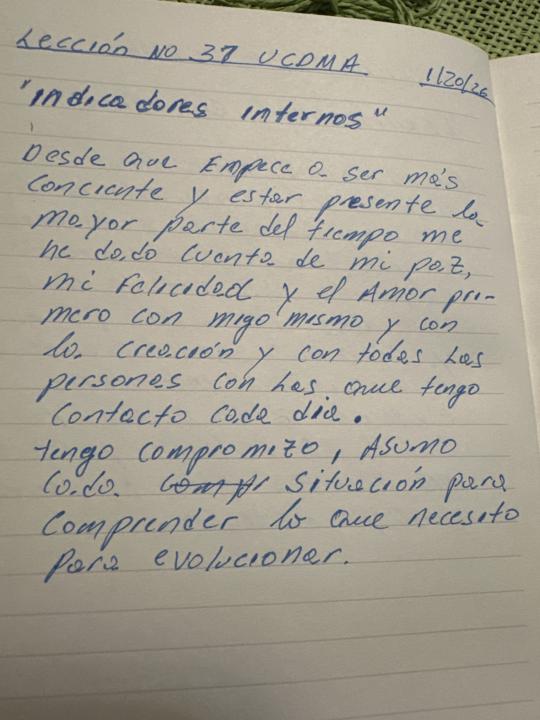 Lección No 37 UCDMA
1/20/26
"Indicadores internos"
Desde que Empece a ser más
conciente y estar presente la
mayor parte del tiempo me
he dado cuenta de mi paz,
mi Felicidad y el Amor pri-
mero con migo mismo y con
la creación y con todas las
personas con las que tengo
contacto cada dia.
tengo compromizo, Asumo
cada compr situación para
comprender lo que necesito
para evolucionar.